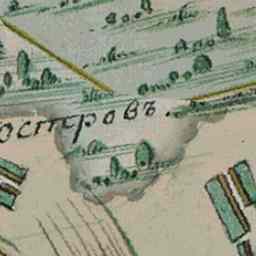 островъ.